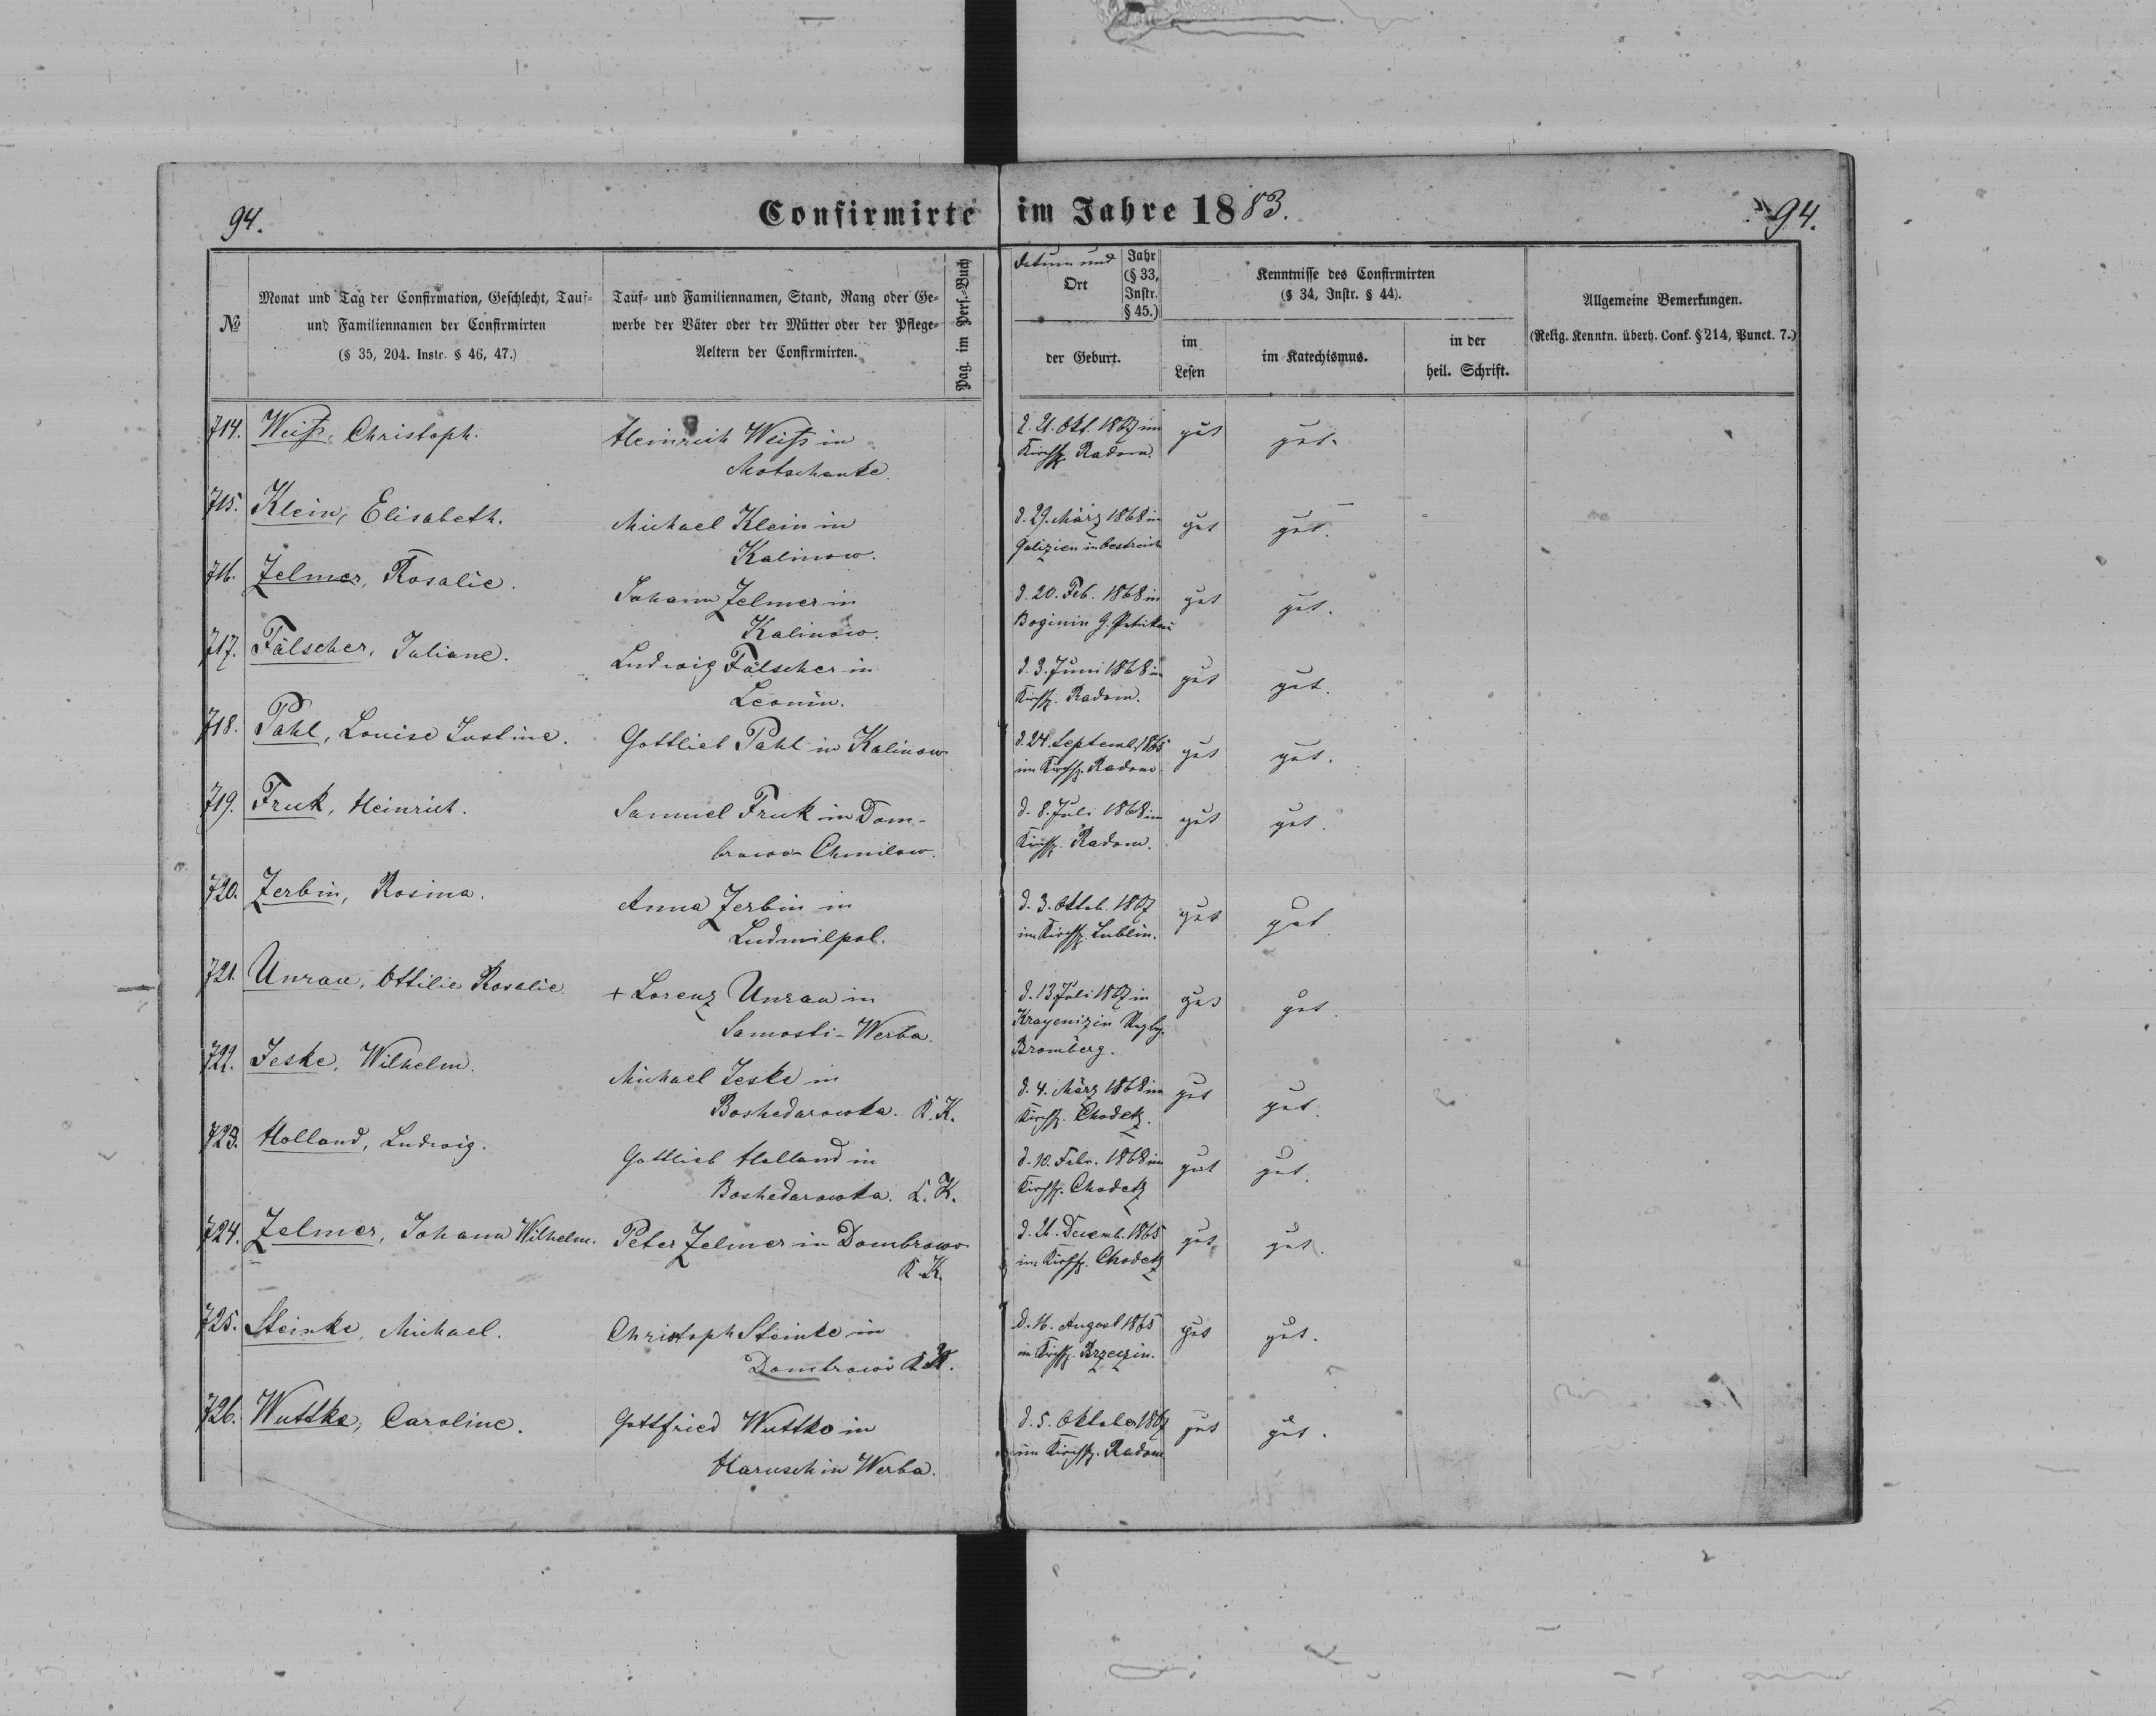 94.
Confirmirte im Jahre 1883.
94.
№
Monat und Tag der Confirmation, Geschlecht, Tauf-
und Familiennamen der Confirmirten
(§ 35, 204. Instr. § 46, 47.)
Tauf- und Familiennamen, Stand, Rang oder Ge-
werbe der Väter oder der Mütter oder der Pflege-
Aeltern der Confirmirten.
Pag. im Pers.-Buch
Datum und
Ort
Jahr
(§ 33,
Instr.
§ 45.)
der Geburt.
Kenntnisse des Confirmirten
(§ 34, Instr. § 44).
im
Lesen
im Katechismus.
in der
heil. Schrift.
Allgemeine Bemerkungen.
(Relig. Kenntn. überh. Conf. § 214, Punct. 7.)
714. Weiss, Christoph.
Heinrich Weiss in
Motschanke.
d. 21. Okt. 1867 im
Kirchsp. Radom.
gut
gut.
715. Klein, Elisabeth.
Michael Klein in
Kalinow.
d. 29. März 1868 in
Galizien in Oestreich
gut
gut.
716. Zelmer, Rosalie.
Johann Zelmer in
Kalinow.
d. 20. Feb. 1868 in
Boginin G. Petrikau
gut
gut.
717. Fälscher, Juliane.
Ludwig Fälscher in
Leonin.
d. 3. Juni 1868 im
Kirchsp. Radom.
gut
gut.
718. Pahl, Louise Justine.
Gottlieb Pahl in Kalinow
d. 24. Septemb. 1865
im Kirchsp. Radom
gut
gut.
719. Fruk, Heinrich.
Samuel Fruk in Dom-
browo-Chmilow.
d. 8. Juli 1868 im
Kirchsp. Radom.
gut
gut.
720. Zerbin, Rosina.
Anna Zerbin in
Ludmilpol.
d. 3. Oktob. 1867
im Kirchsp. Lublin.
gut
gut.
721. Unrau, Ottilie Rosalie.
+ Lorenz Unrau in
Samosti-Werba.
d. 13. Juli 1867 in
Bromberg.
gut
gut.
722. Jeske, Wilhelm.
Michael Jeske in
Boshedarowka. K. K.
d. 4. März 1868 im
Kirchsp. Chodetz.
gut
gut.
723. Holland, Ludwig.
Gottlieb Holland in
Boshedarowka. K. K.
d. 10. Febr. 1868 im
Kirchsp. Chodetz
gut
gut.
724. Zelmer, Johann Wilhelm.
Peter Zelmer in Dombrowo
K. K.
d. 21. Decemb. 1865
im Kirchsp. Chodetz
gut
gut.
725. Steinke, Michael.
Christoph Steinke in
Dombrowo K. K.
d. 16. August 1865
im Kirchsp. Brzezin.
gut
gut.
726. Wuttke, Caroline.
Gottfried Wuttke in
Haruschin Werba.
d. 5. Oktober 1867
im Kirchsp. Radom
gut
gut.